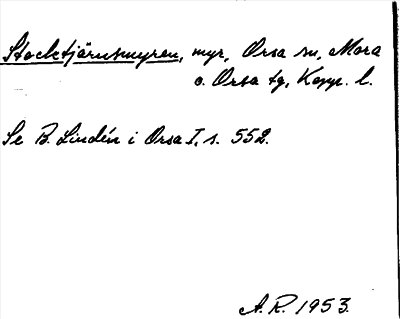 Stocktjärnsmyren, myr, Orsa sn, Mora
o. Orsa tg, Kopp. l.
Se B. Lindén i Orsa I, s. 552.
A. R. 1953.